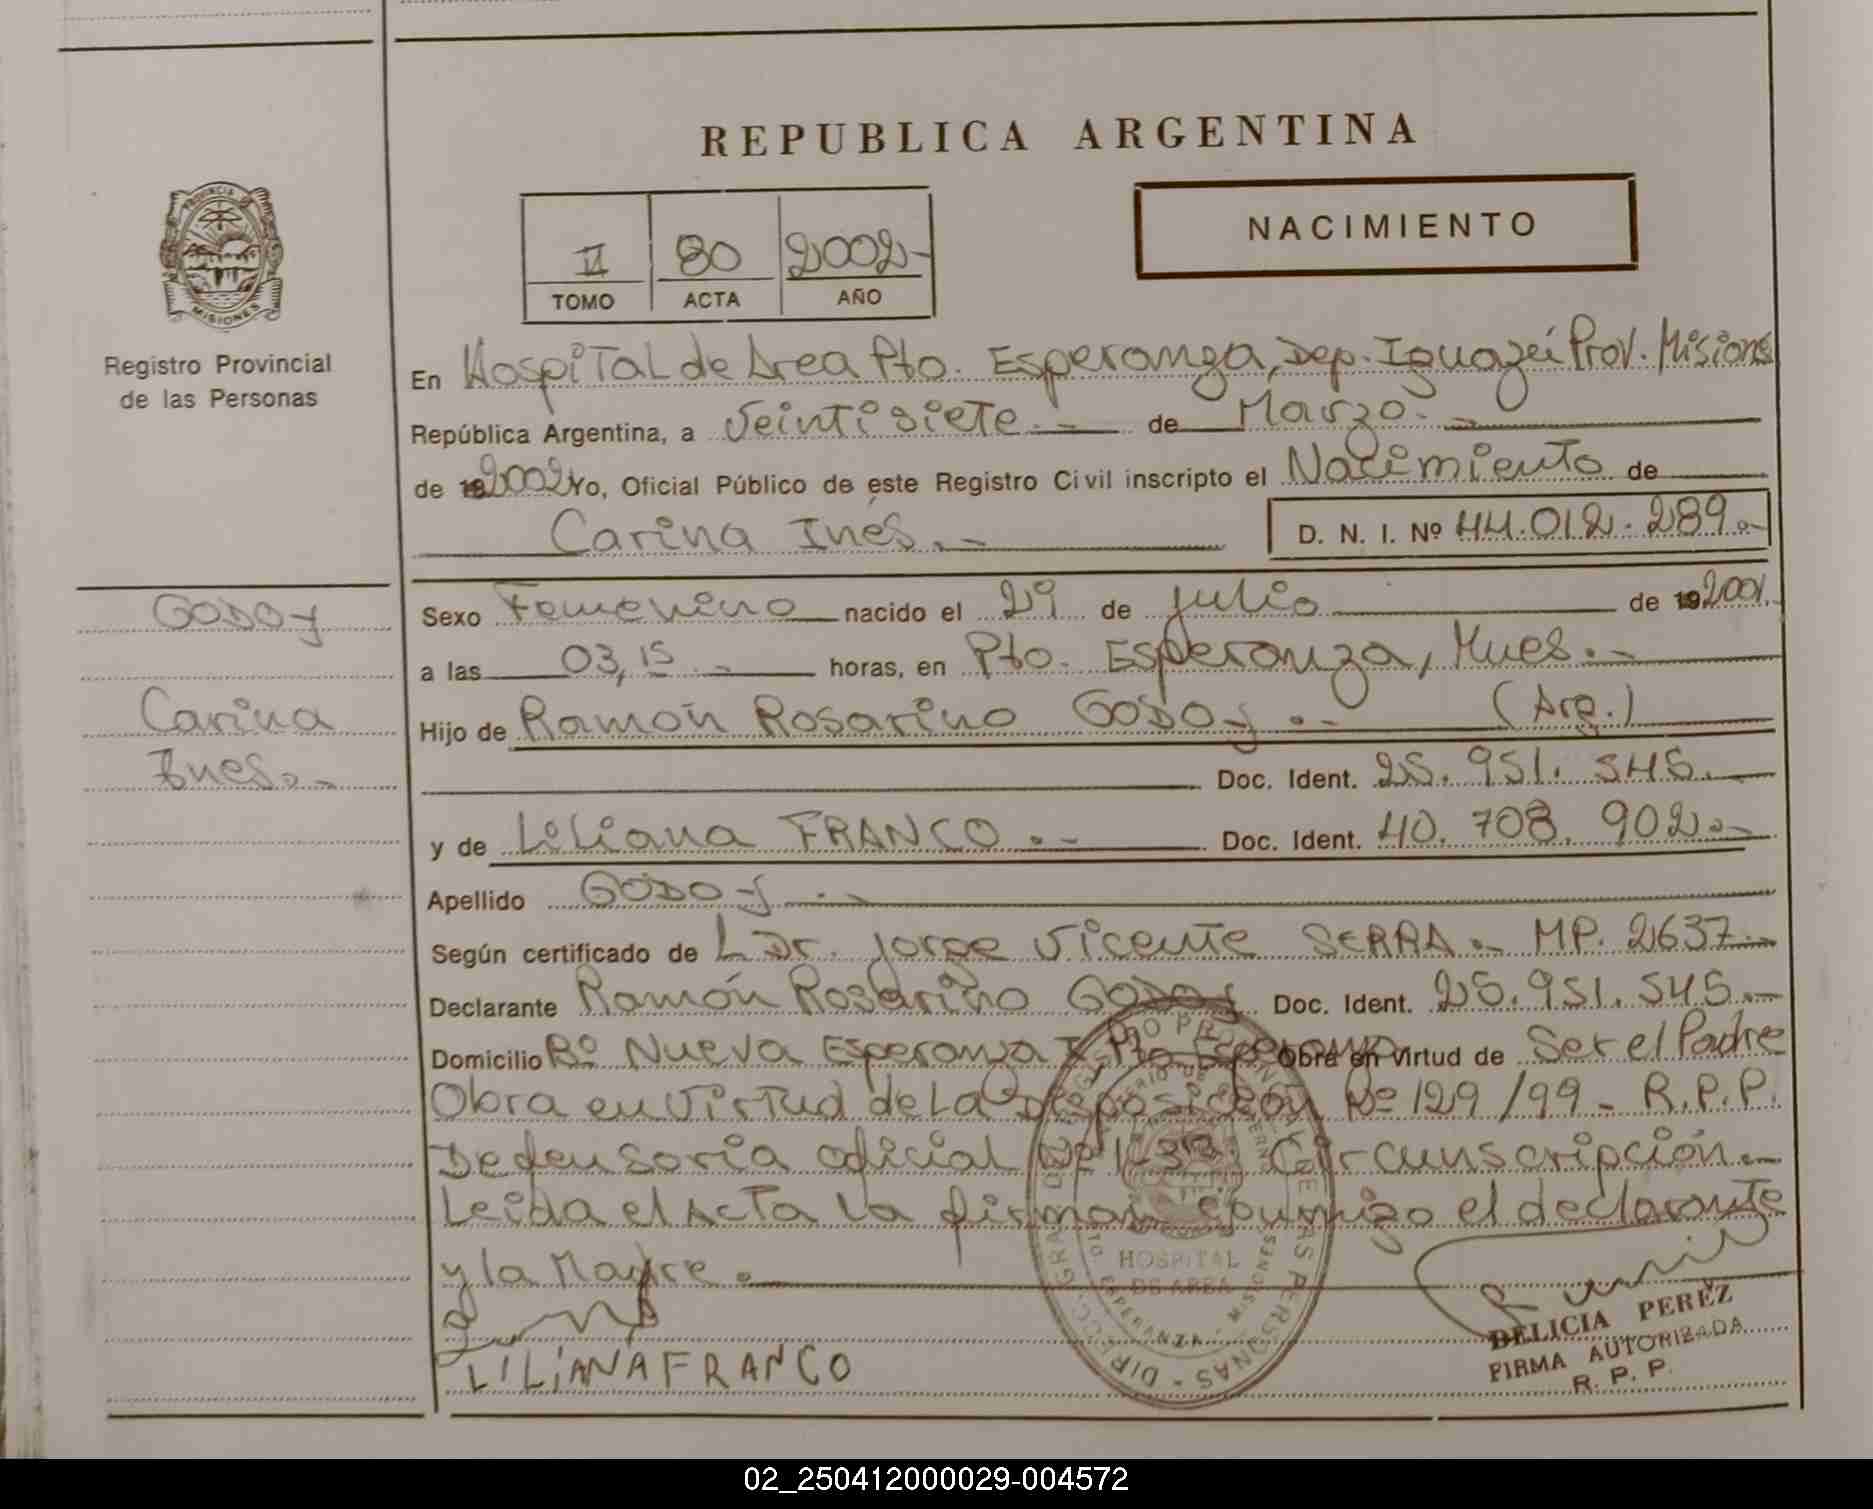 REPUBLICA ARGENTINA
PROVINCIA DE MISIONES
Registro Provincial
de las Personas
II 80 2002-
TOMO ACTA AÑO
NACIMIENTO
En Hospital de Area Pto. Esperanza, Dep. Iguazú Prov. Misiones
República Argentina, a Veintisiete.- de Marzo.-
de 192002 Yo, Oficial Público de este Registro Civil inscripto el Nacimiento de
Carina Inés.- D. N. I. Nº 44.012.289.-
GODOY
Carina
Ines.-
Sexo Femenino nacido el 29 de Julio de 192001.
a las 03,15.- horas, en Pto. Esperanza, Mnes.-
Hijo de Ramón Rosarino GODOY.- (Arg.)
Doc. Ident. 25.951.545.-
y de Liliana FRANCO.- Doc. Ident. 40.708.902.-
Apellido GODOY.-
Según certificado de L Dr. Jorge Vicente SERRA.- MP. 2637.-
Declarante Ramón Rosarino GODOY Doc. Ident. 25.951.545.-
Domicilio Bº Nueva Esperanza I Pto Esperanza Obra en virtud de Ser el Padre
Obra en Virtud de La Disposición Nº 129/99- R.P.P.
Defensoria oficial Nº 1 Circunscripción.-
Leida el Acta la firman conmigo el declarante
y la Madre.
LILIANA FRANCO
HOSPITAL
DE AREA
PTO. ESPERANZA - MISIONES
DELICIA PEREZ
FIRMA AUTORIZADA
R. P. P.
02_250412000029-004572